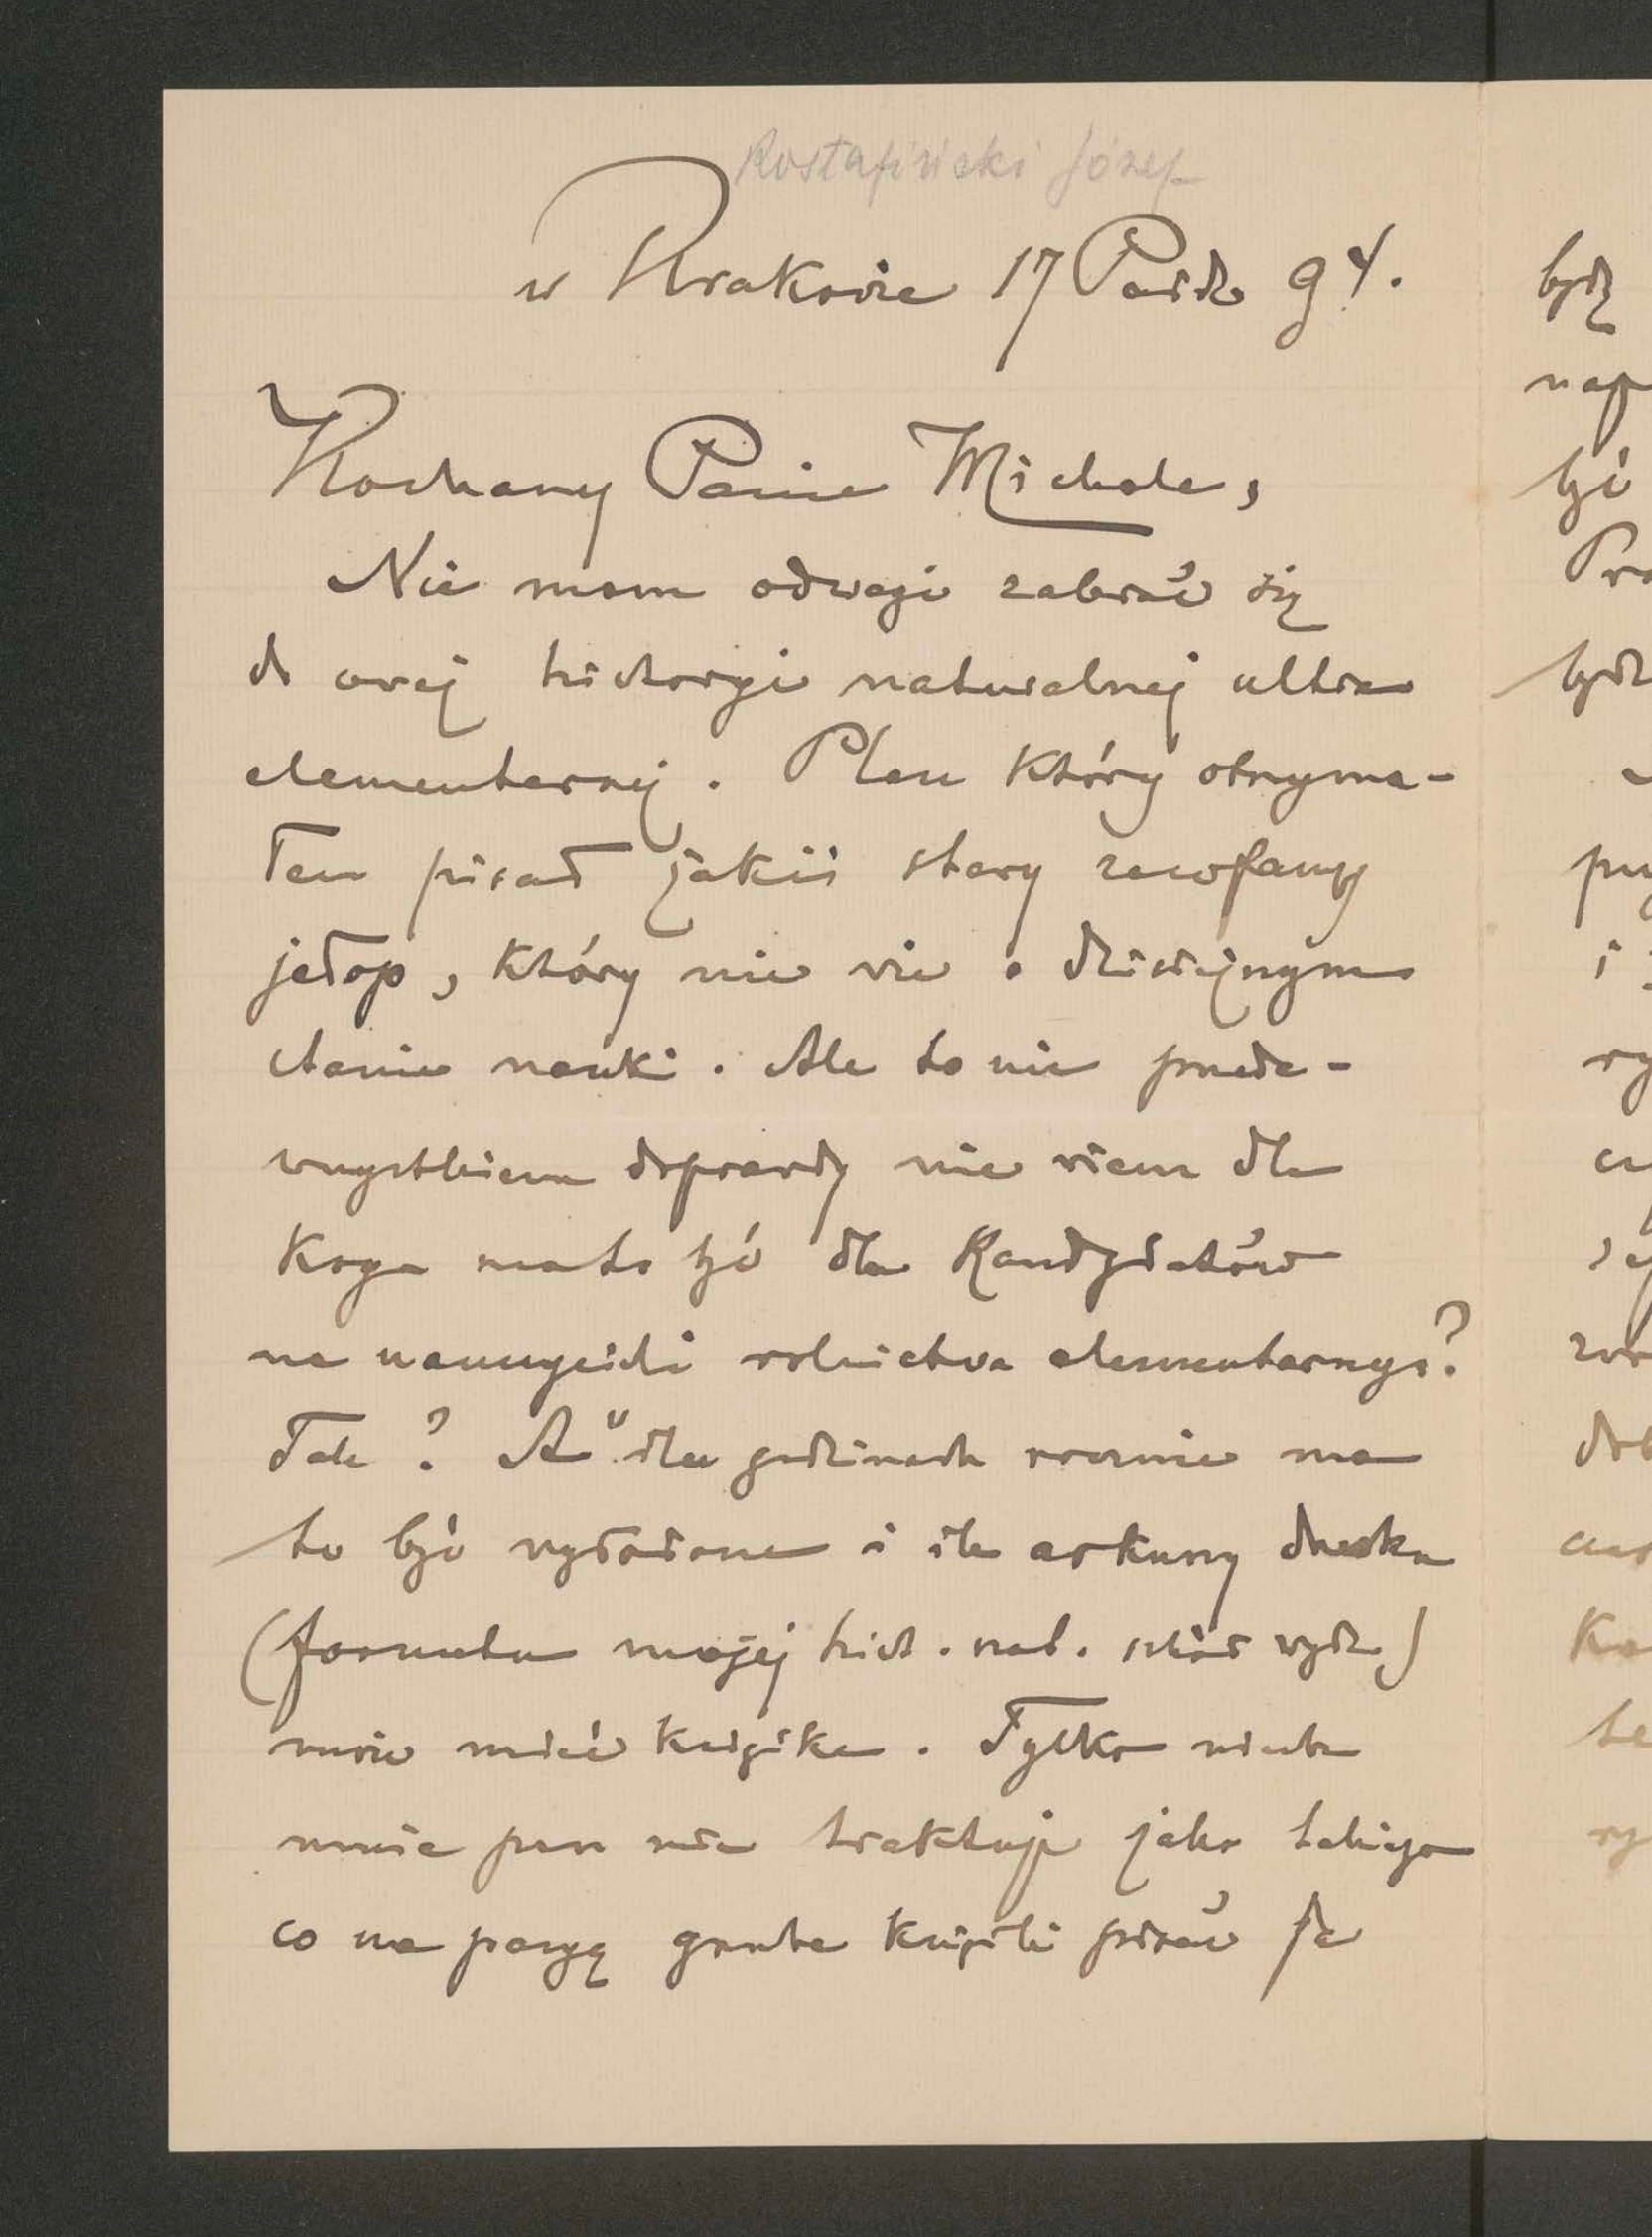 Rostafiński Józef
w Krakowie 17 Paźdz 94.
Kochany Panie Michale,
Nie mam odwagi zabrać się
do owej historyi naturalnej ultra
elementarnej. Plan który otrzyma-
łem pisał jakiś stary zacofany
jełop, który nie wie o dzisiejszym
stanie nauki. Ale to nic przede-
wszystkiem doprawdy nie wiem dla
kogo ma to być dla Kandydatów
na nauczycieli rolnictwa elementarnego?
Tak? A w ilu godzinach rocznie ma
to być wyłożone i ile arkuszy druku
(formatu mojej hist. nat. szkół wydz)
może mieć książka. Tylko niech
mnie pan nie traktuje jako takiego
co na parzę grube książki pisać
będę
nap
być
Pro
będz
i
Ka